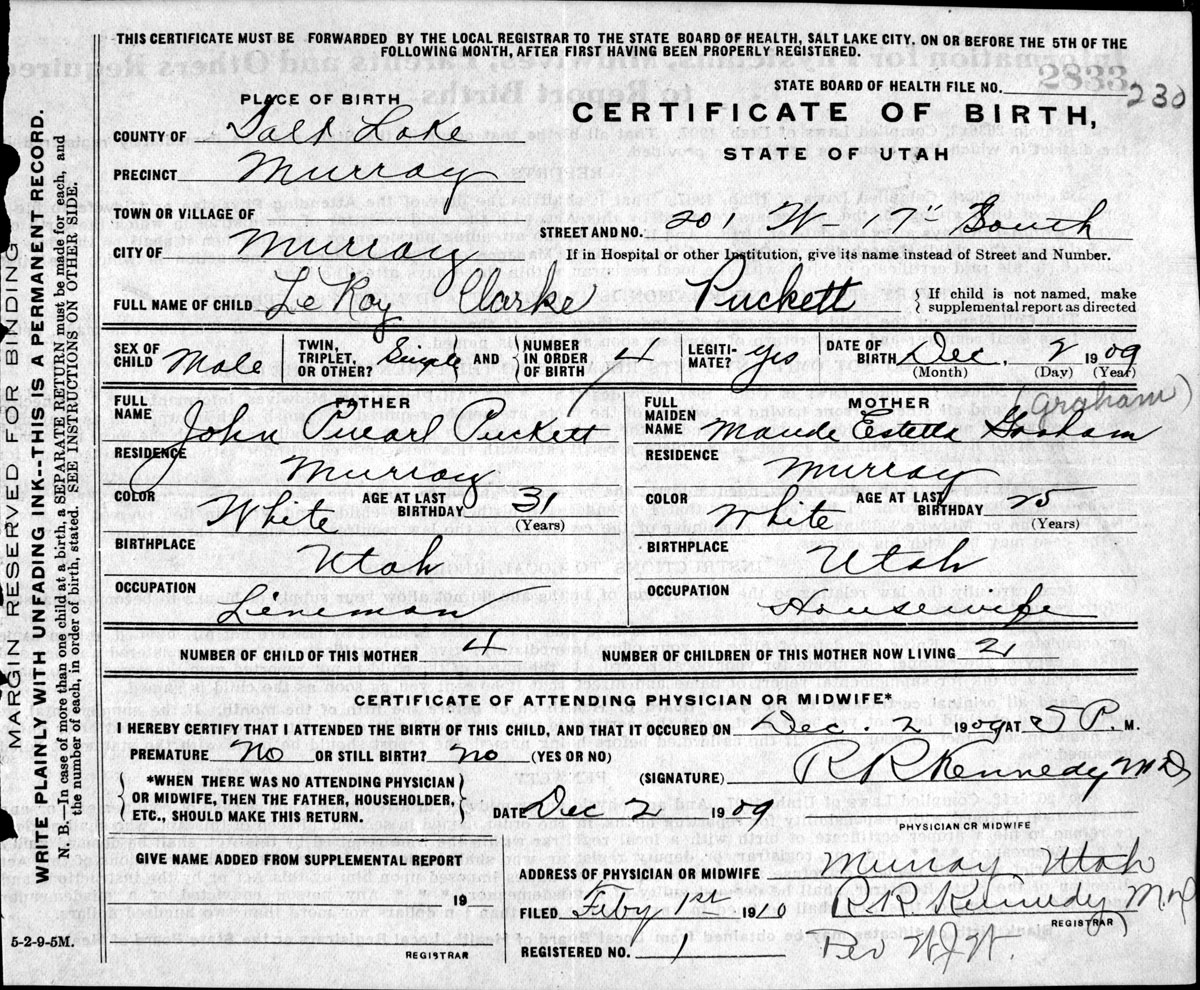 THIS CERTIFICATE MUST BE FORWARDED BY THE LOCAL REGISTRAR TO THE STATE BOARD OF HEALTH, SALT LAKE CITY, ON OR BEFORE THE 5TH OF THE
FOLLOWING MONTH, AFTER FIRST HAVING BEEN PROPERLY REGISTERED.
STATE BOARD OF HEALTH FILE NO. 230
2833
PLACE OF BIRTH
CERTIFICATE OF BIRTH,
STATE OF UTAH
COUNTY OF Salt Lake
PRECINCT Murray
TOWN OR VILLAGE OF
STREET AND NO. 201 W- 17" South
CITY OF Murray
If in Hospital or other Institution, give its name instead of Street and Number.
FULL NAME OF CHILD LeRoy Clarke Puckett
If child is not named, make
supplemental report as directed
SEX OF CHILD Male
TWIN, TRIPLET, OR OTHER? Single AND NUMBER IN ORDER OF BIRTH 4
LEGITI- MATE? yes
DATE OF BIRTH Dec. 2 1909
(Month) (Day) (Year)
FATHER
FULL NAME John Puearl Puckett
RESIDENCE Murray
COLOR White AGE AT LAST BIRTHDAY 31
(Years)
BIRTHPLACE Utah
OCCUPATION Lineman
MOTHER (Grgham)
FULL MAIDEN NAME Maude Estella Graham
RESIDENCE Murray
COLOR White AGE AT LAST BIRTHDAY 25
(Years)
BIRTHPLACE Utah
OCCUPATION Housewife
NUMBER OF CHILD OF THIS MOTHER 4 NUMBER OF CHILDREN OF THIS MOTHER NOW LIVING 2
CERTIFICATE OF ATTENDING PHYSICIAN OR MIDWIFE*
I HEREBY CERTIFY THAT I ATTENDED THE BIRTH OF THIS CHILD, AND THAT IT OCCURED ON Dec. 2 1909 AT 5 P. M.
PREMATURE No OR STILL BIRTH? No (YES OR NO)
(SIGNATURE) R R Kennedy M D
*WHEN THERE WAS NO ATTENDING PHYSICIAN
OR MIDWIFE, THEN THE FATHER, HOUSEHOLDER,
ETC., SHOULD MAKE THIS RETURN.
DATE Dec 2 1909
PHYSICIAN OR MIDWIFE
GIVE NAME ADDED FROM SUPPLEMENTAL REPORT
19
REGISTRAR
ADDRESS OF PHYSICIAN OR MIDWIFE Murray Utah
FILED Feby 1st 1910 R R Kennedy M D
REGISTRAR
REGISTERED NO. 1 Per W.J.W.
5-2-9-5M.
MARGIN RESERVED FOR BINDING
WRITE PLAINLY WITH UNFADING INK--THIS IS A PERMANENT RECORD.
N. B.—In case of more than one child at a birth, a SEPARATE RETURN must be made for each, and
the number of each, in order of birth, stated. SEE INSTRUCTIONS ON OTHER SIDE.